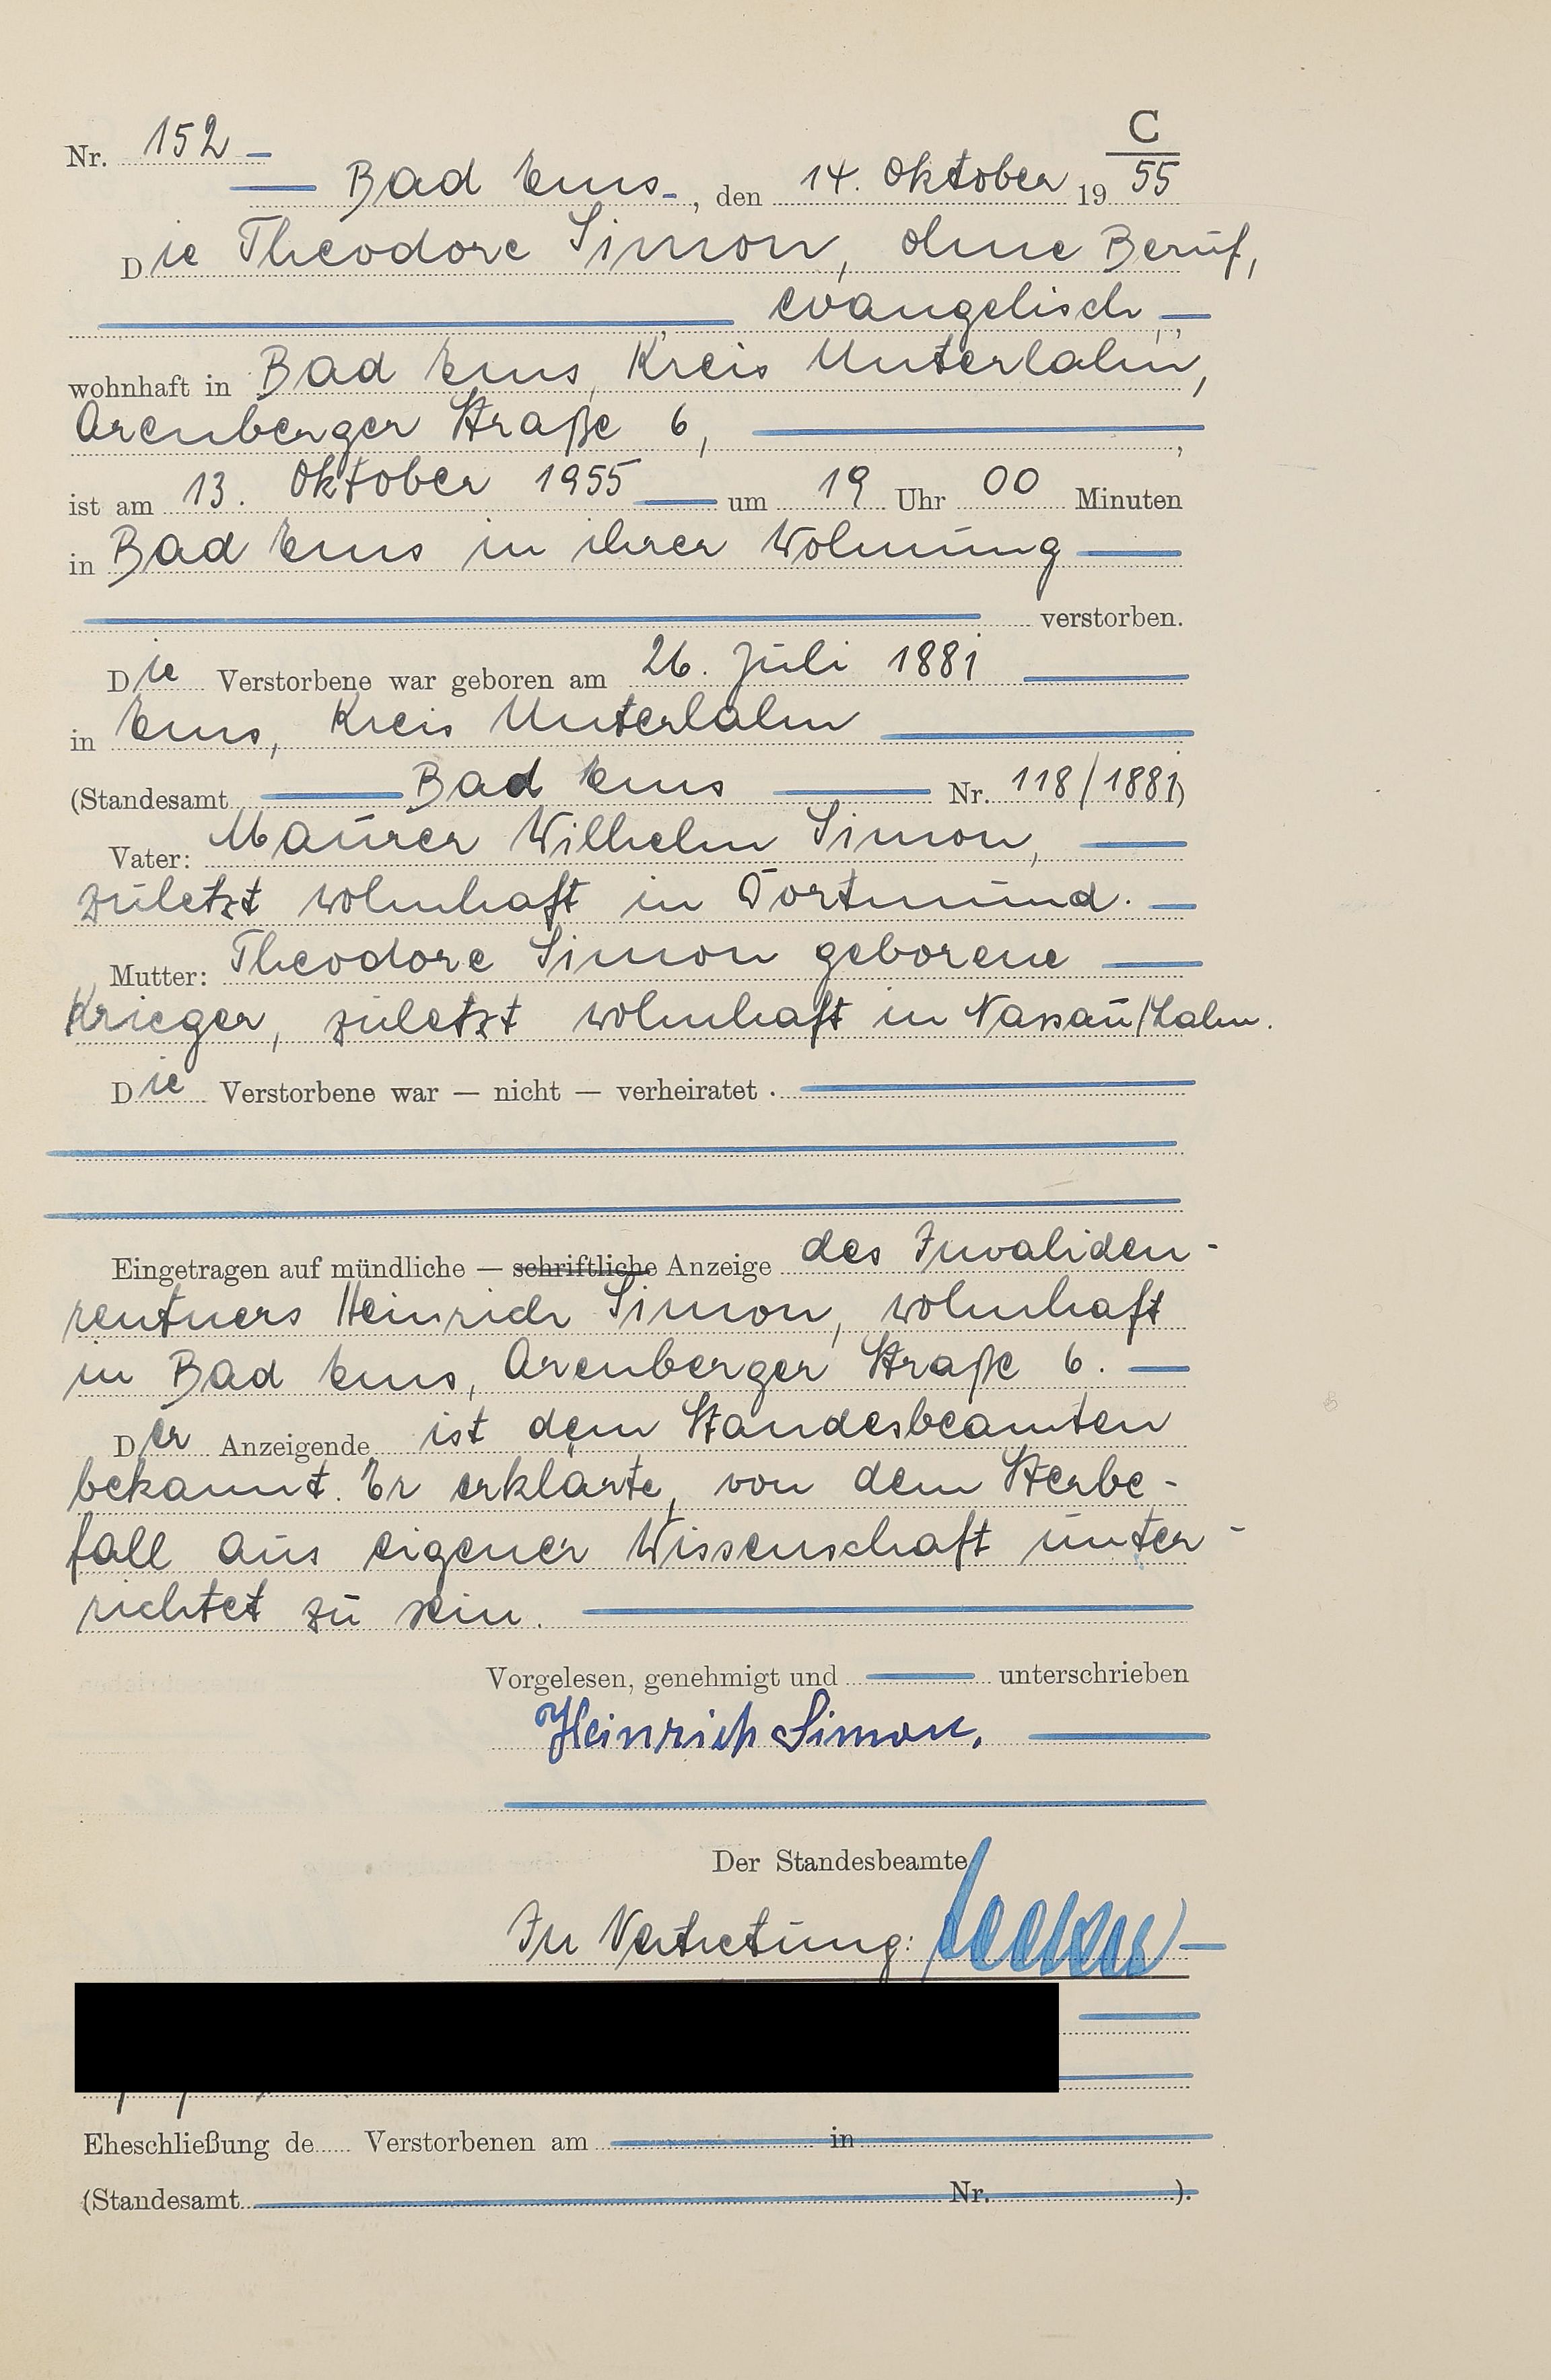 C
Nr. 152
Bad Ems, den 14. Oktober 19 55
Die Theodore Simon, ohne Beruf,
evangelisch,
wohnhaft in Bad Ems, Kreis Unterlahn,
Arenberger Straße 6,
ist am 13. Oktober 1955 um 19 Uhr 00 Minuten
in Bad Ems in ihrer Wohnung
verstorben.
Die Verstorbene war geboren am 26. Juli 1881
in Ems, Kreis Unterlahn
(Standesamt Bad Ems Nr. 118/1881)
Vater: Maurer Wilhelm Simon,
zuletzt wohnhaft in Dortmund.
Mutter: Theodore Simon geborene
Krieger, zuletzt wohnhaft in Nassau/Lahn.
Die Verstorbene war — nicht — verheiratet.
Eingetragen auf mündliche — schriftliche Anzeige des Invaliden-
rentners Heinrich Simon, wohnhaft
in Bad Ems, Arenberger Straße 6.
Der Anzeigende ist dem Standesbeamten
bekannt. Er erklärte, von dem Sterbe-
fall aus eigener Wissenschaft unter-
richtet zu sein.
Vorgelesen, genehmigt und unterschrieben
Heinrich Simon.
Der Standesbeamte
In Vertretung:
Eheschließung de Verstorbenen am in
(Standesamt Nr. ).